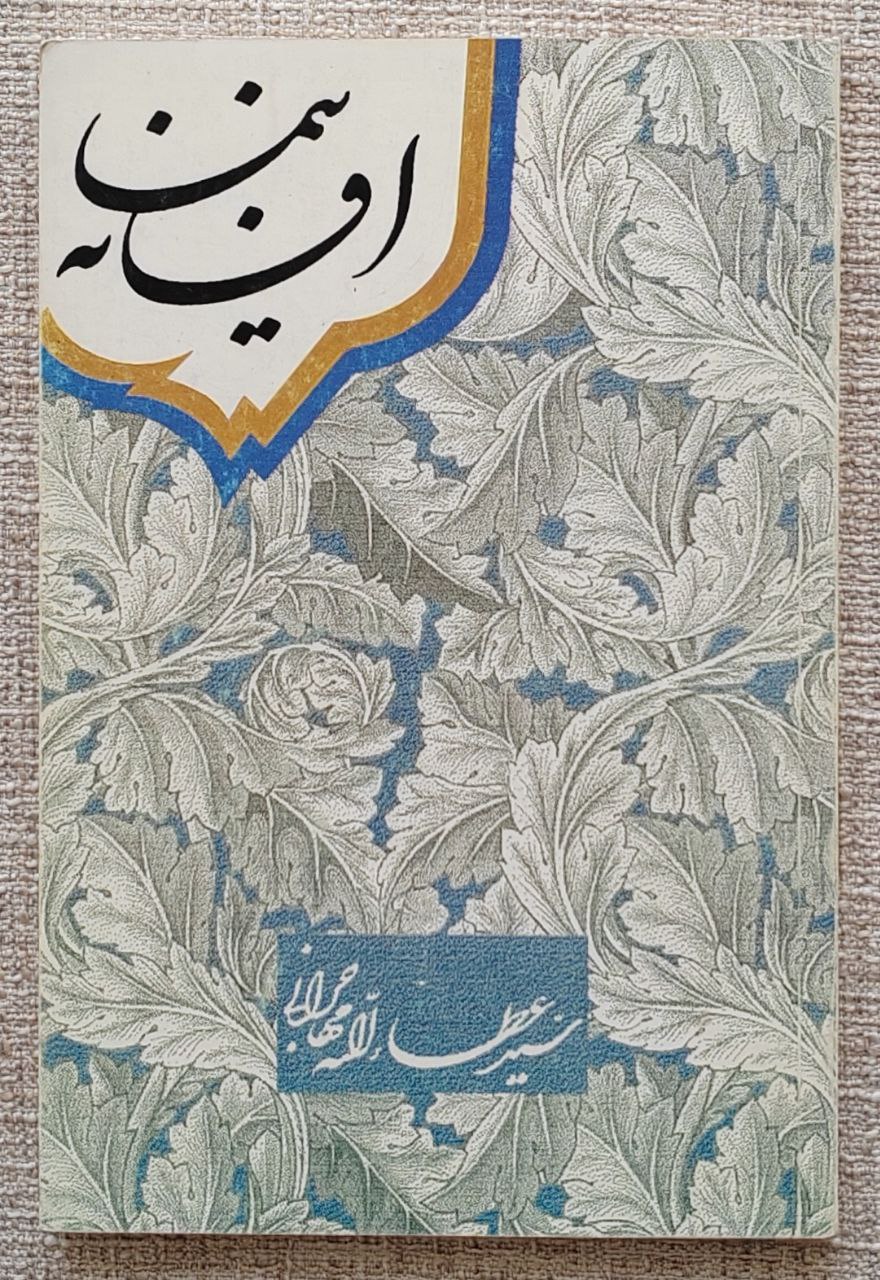 افسانه نیما
سید عطاءالله مهاجرانی